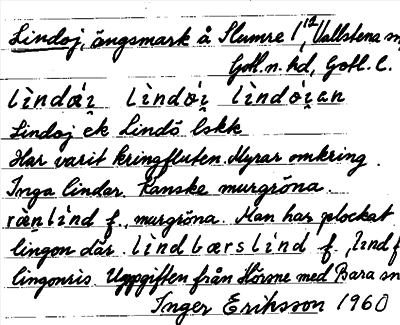 Lindoj, ängsmark å Slumre 1¹², Vallstena sn
Gotl. n. hd, Gotl. l.
lìndœ̀i̯ lìndó̀i̯ lìndói̯an
Lindoj ek Lindö lskk
Har varit kringfluten. Myrar omkring.
Inga lindar. Kanske murgröna.
rœ̀nlìnd f., murgröna. Man har plockat
lingon där. lindbærslind f., lind f
lingonris. Uppgiften från Hörsne med Bara sn
Inger Eriksson 1960